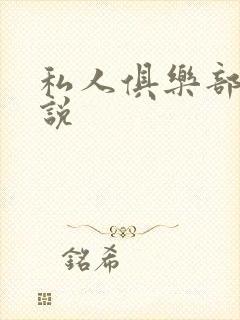 私人俱樂部
說
銘希